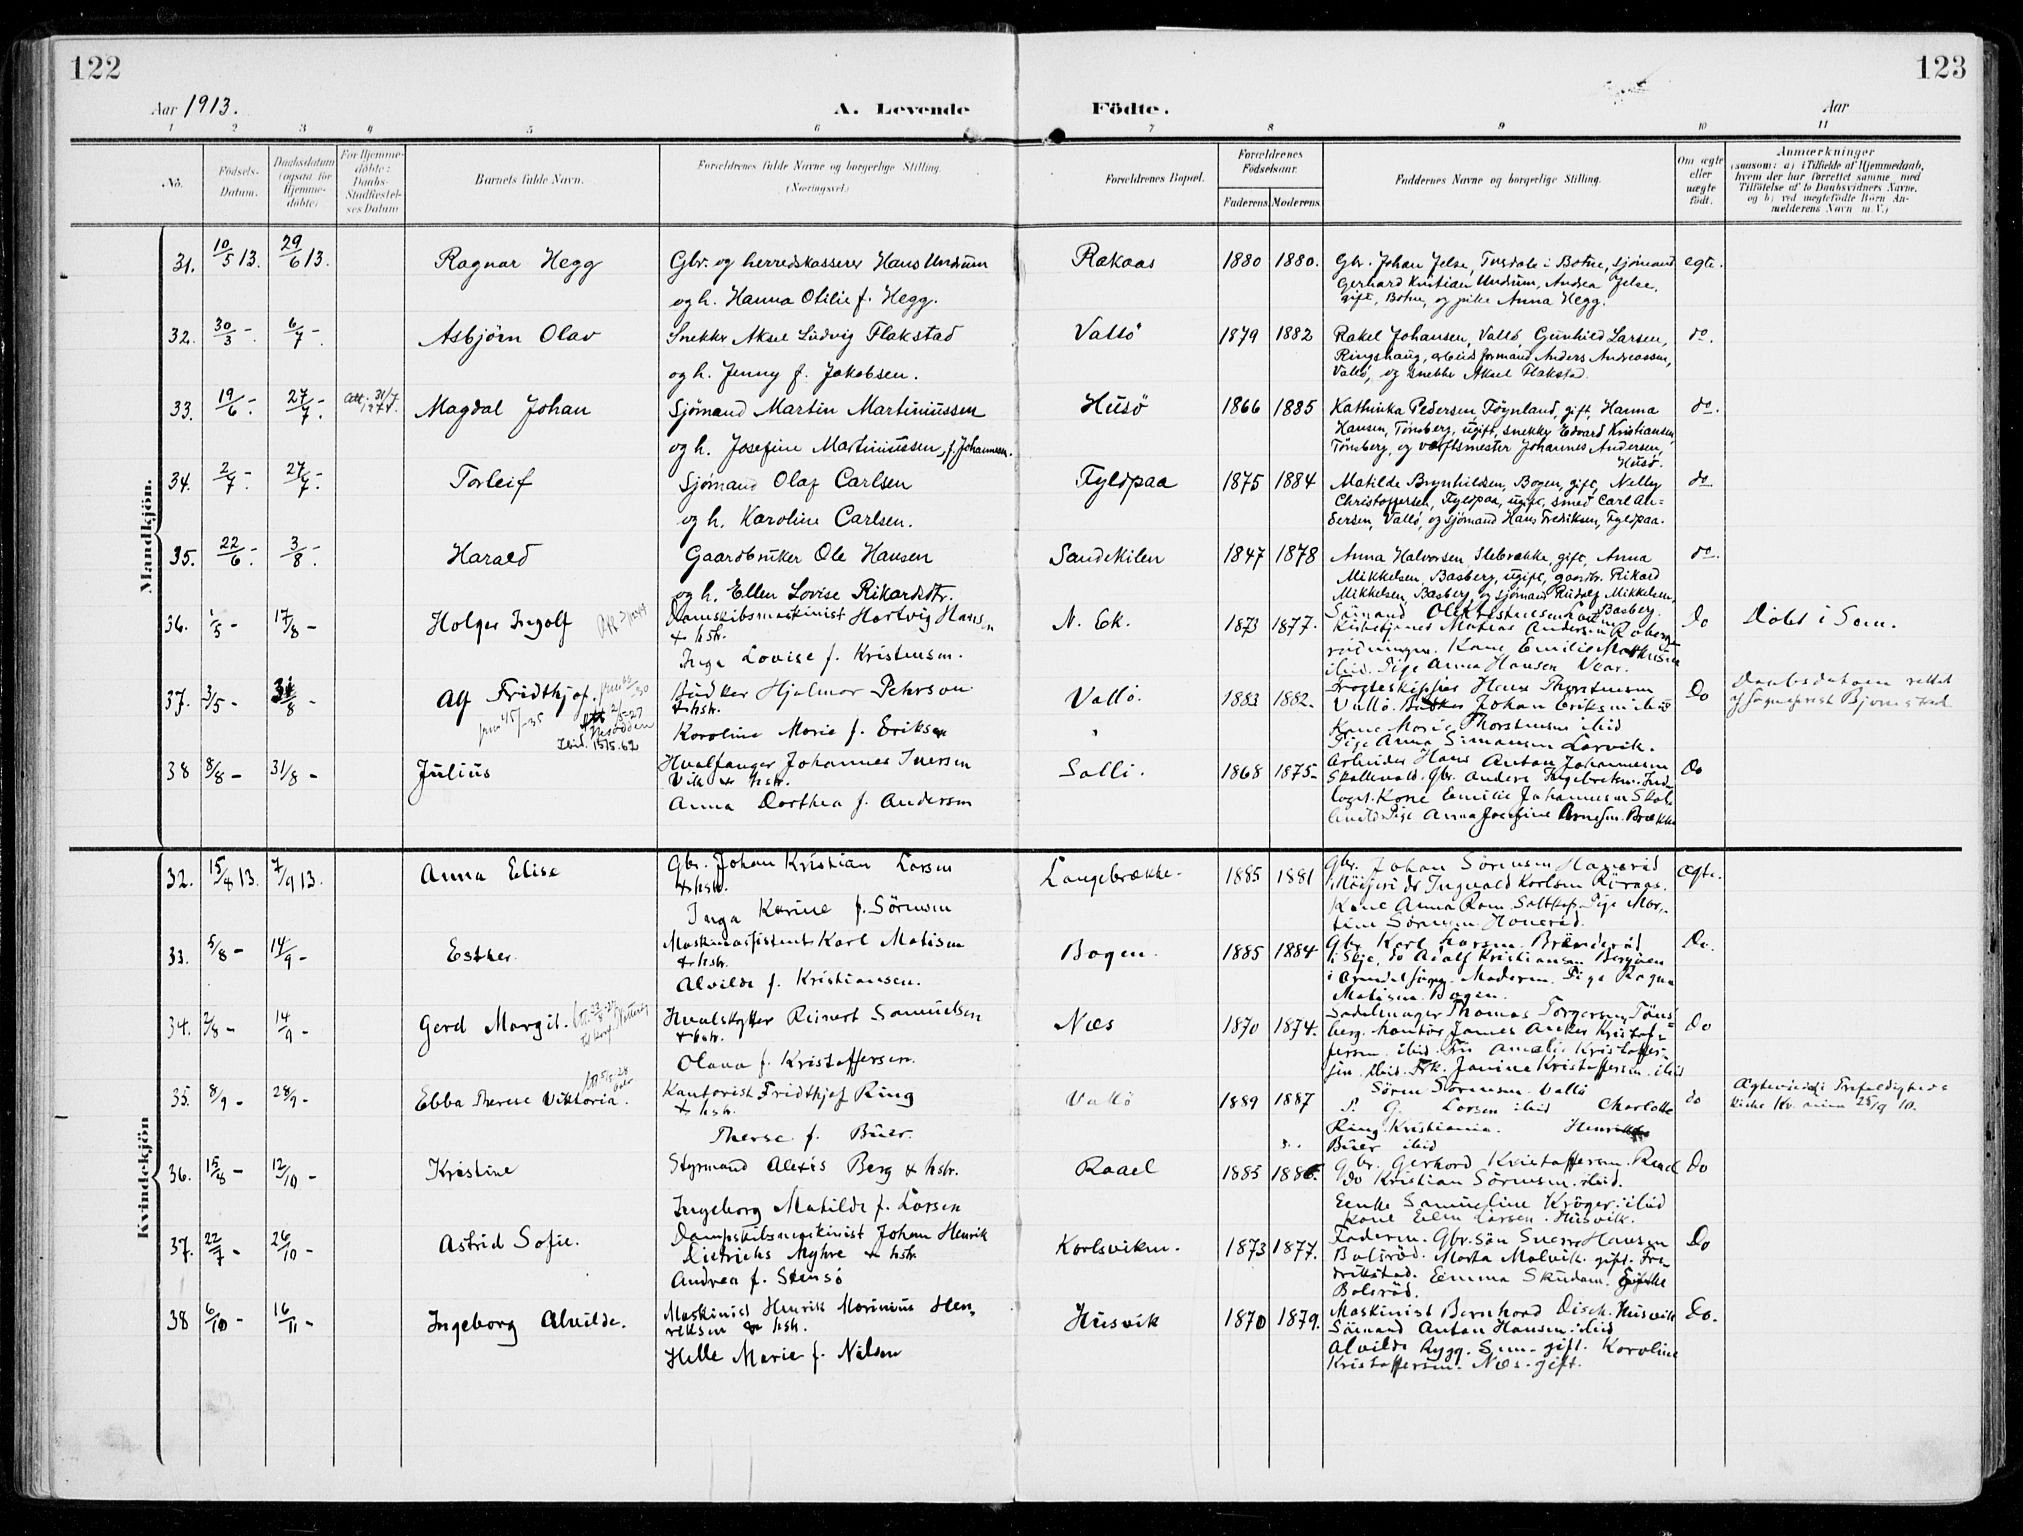 122
123
Aar 1913.
A. Levende
Födte.
Aar
1 2 3 4 5 6 7 8 9 10 11
No.
Födsels-Datum.
Daabsdatum (ogsaa for Hjemmedöbte)
For Hjemmedöbte: Daabs-Stadfæstelses Datum
Barnets fulde Navn.
Forældrenes fulde Navne og borgerlige Stilling. (Næringsvei.)
Forældrenes Bopæl.
Forældrenes Födselsaar.
Faderens Moderens
Faddernes Navne og borgerlige Stilling.
Om ægte eller uægte födt.
Anmærkninger
(saasom: a) i Tilfælde af Hjemmedaab, hvem der har forrettet samme med Tilföielse af to Daabsvidners Navne, og b) ved uægtefödte Börn Anmelderens Navn m. V.)
Mandkjön.
31. 10/5 13. 29/6 13. Ragnar Hegg Gbr. og herredskasserer Hans Undrum Rakaas 1880 1880. Gbr. Johan Jelse, i Botne, sjømand egte.
og h. Hanna Otilie f. Hegg. Gerhard Kristian Undrum, Andrea Jelse,
gift, Botne, og pike Anna Hegg.
32. 30/3 - 6/7 - Asbjörn Olav Snekker Aksel Ludvig Flakstad Vallö 1879 1882 Rakel Johansen, Vallö, Gunhild Larsen, do.
og h. Jenny f. Jakobsen. Ringshaug, arbeidsformand Anders Andreassen,
Vallö, og snekker Aksel Flakstad.
33. 19/6 - 27/7 - Att. 31/7 1974. Magdal Johan Sjømand Martin Martiniussen Husö 1866 1885 Kathinka Pedersen, Föynland, gift, Hanna do.
og h. Josefine Martiniussen, f. Johannesen. Hansen, Tønsberg, ugift, snekker Edvard Kristiansen,
Tønsberg, og værftsmester Johannes Andersen,
Husö.
34. 2/7 - 27/7 - Torleif Sjømand Olaf Carlsen Fyldpaa 1875 1884 Matilde Brynhildsen, Bogen, gift, Nelly do
og h. Karoline Carlsen. Christoffersen, Fyldpaa, ugift, smed Carl An-
dersen, Vallö, og sjømand Hans Fredriksen, Fyldpaa.
35. 22/6 - 3/8 - Harald Gaardbruker Ole Hansen Sandekilen 1847 1878 Anna Halvorsen Slebrække, gift, Anna do
og h. Ellen Lovise Rikardsdtr. Mikkelsen, Basberg, ugift, gaardbr. Rikard
Mikkelsen, Basberg, og sjømand Rudolf Mikkelsen,
Basberg.
36. 1/5 - 17/8 - Holger Ingolf Damskibsmaskinist Hartvig Hansen N. Ek. 1873 1877. Sømand Ole Kristensen Do Döbt i Sem.
& hstr. Kirketjener Matias Andersen
Inga Lovise f. Kristensen. Kone Emilie
ibid. Pige Anna Hansen
37. 3/5 - 31/8 - Alf Fridthjof. Bödker Hjalmar Pehrson Vallö. 1883 1882. Hans Thorstensen Do Daabsdatoen rettet
& hstr. Vallö. Johan Eriksen ibid af Sogneprest Bjørnstad
Karoline Marie f. Eriksen Kone Marie Thorstensen ibid
Pige Anna Simonsen Larvik.
38 8/8 - 31/8 - Julius Hvalfanger Johannes Iversen Solli. 1868 1875- Arbeider Hans Anton Johannesen Do
Vik & hstr. Skallevold. Gbr. Anders Ingebretsen.
Anna Dorthea f. Andersen Kone Emilie Johannesen
Pige Anna Josefine Arnesen. Brekke
Kvindekjön
32. 15/8 13. 7/9 13. Anna Elise Gbr. Johan Kristian Larsen Langebrække. 1885 1881 Gbr. Johan Sörensen Hanerød Ægte.
& hstr. Ingvald Karlsen
Inga Karine f. Sörensen Kone Anna Ram. Pige Mar-
tine Sörensen. Hanerød.
33. 5/8 - 14/9 - Esther. Maskinassistent Karl Matisen Bogen. 1885 1884 Gbr. Karl Larsen. Do.
& hstr. do Adolf Kristiansen Bergven
Alvilde f. Kristiansen. Moderen. Pige Ragna
Matisen. Bogen.
34. 2/8 - 14/9 - Gerd Margit. Hvalskytter Reinert Samuelsen Næs 1870 1874. Sadelmager Thomas Torgersen Töns- Do
& hstr. berg. Kontor James Anker Kristof-
Olava f. Kristoffersen. fersen. ibid. Fru Amalie Kristoffer-
sen. ibid. Frk. Janine Kristoffersen. ibid
35. 8/9 - 28/9 - Ebba Therese Viktoria. Kontorist Fridthjof Ring Vallö 1889 1887 Sören Sörensen. Vallö do Ægteviede i Trefoldigheds
& hstr. P. G. Larsen ibid Charlotte kirke
Therese f. Buer. Ring. Kristiania. Henrikke
Buer ibid
36. 15/8 - 12/10 - Kristine Styrmand Alexis Berg & hstr. Raael 1885 1886. Gbr. Gerhard Kristoffersen. Raael Do
Ingeborg Matilde f. Larsen do Kristian Sörensen. ibid.
Enke Samueline Kröger. ibid
Kone Elen Larsen. Husvik.
37. 22/7 - 26/10 - Astrid Sofie. Dampskibsmaskinist Johan Henrik Karlsviken. 1873 1877. Faderen. Gbr.sön Sverre Hansen Do
Dietrichs Myhre & hstr. Bolsröd. Marta Malvik. gift. Fre-
Andrea f. Stensö drikstad. Emma Skudam.
Bolsröd.
38 6/10 - 16/11 - Ingeborg Alvilde. Maskinist Henrik Marinius Hen- Husvik 1870 1879. Maskinist Bernhard Disch. Husvik Do.
riksen & hstr. Sömand Anton Hansen. ibid
Helle Marie f. Nilsen Alvilde Rygg. Sem. gift. Karoline
Kristoffersen. Næs. gift.